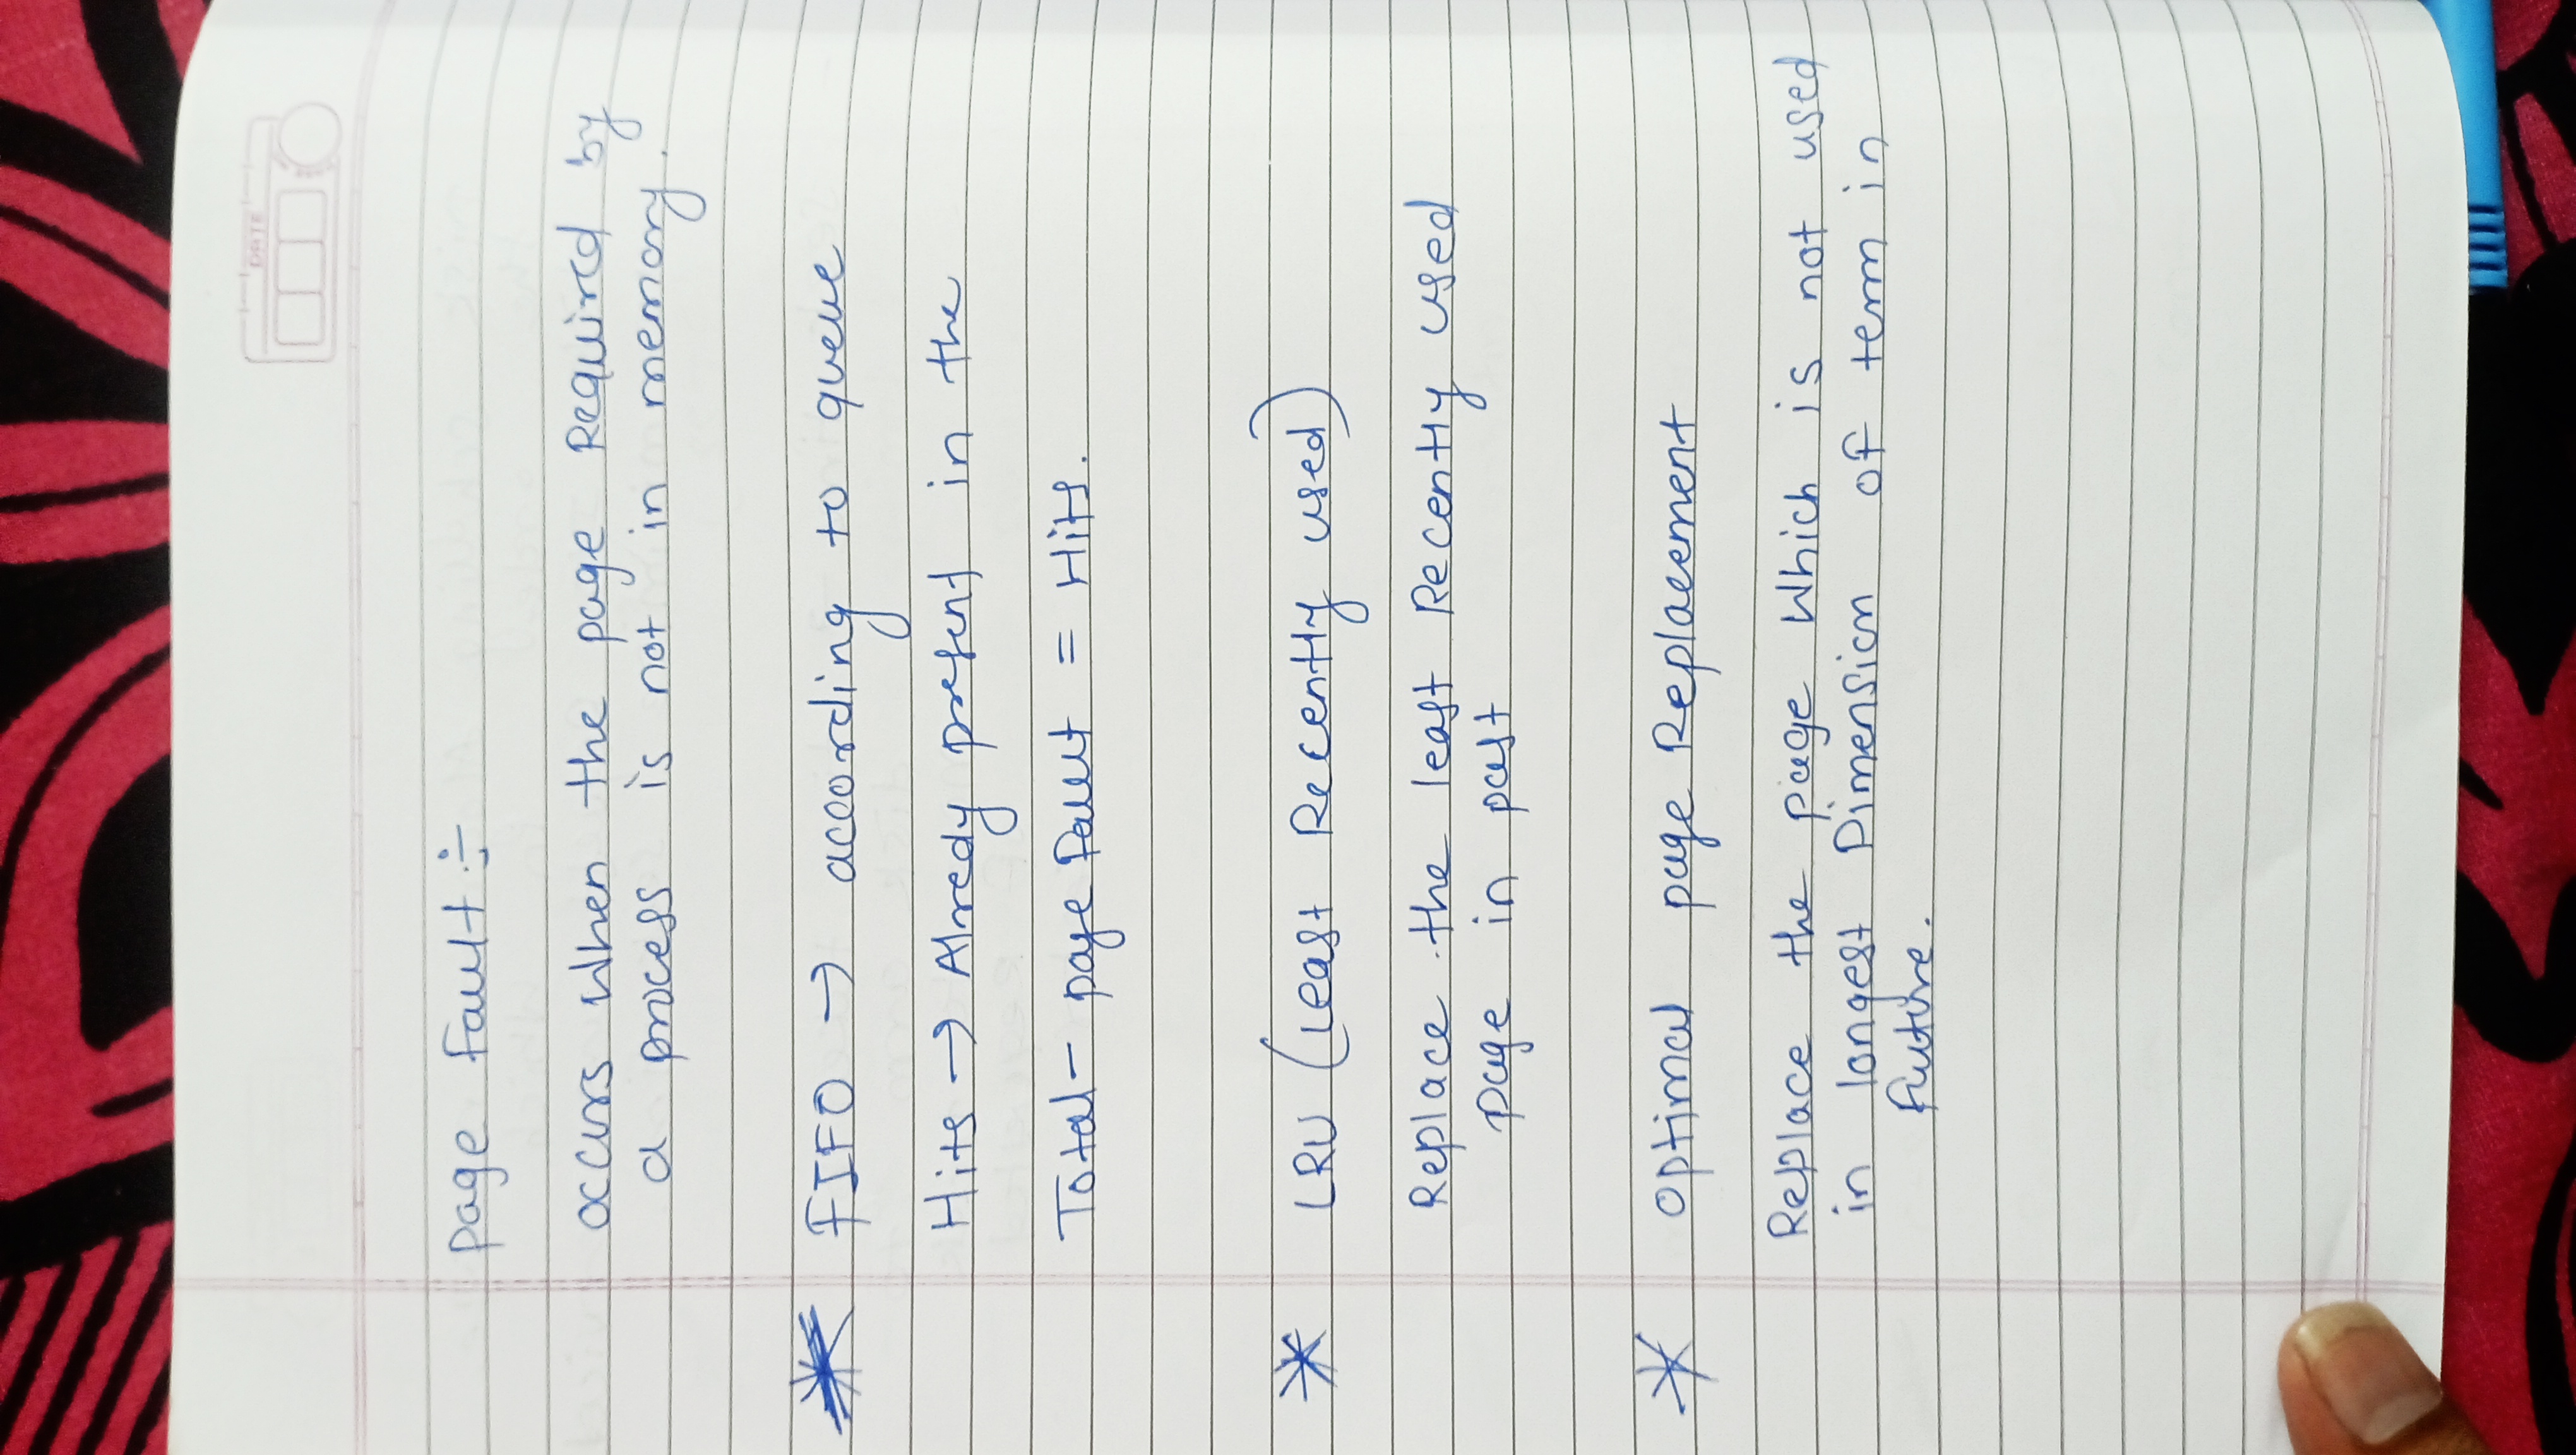 DATE
page fault :-
occurs when the page Required by
a process is not in memory.
* FIFO → according to queue
Hits → Alredy present in the
Total - page fault = Hits.
* LRU (Least Recently used)
Replace the least Recently used
page in past
* Optimal page Replacement
Replace the page Which is not used
in longest Dimension of term in
future.